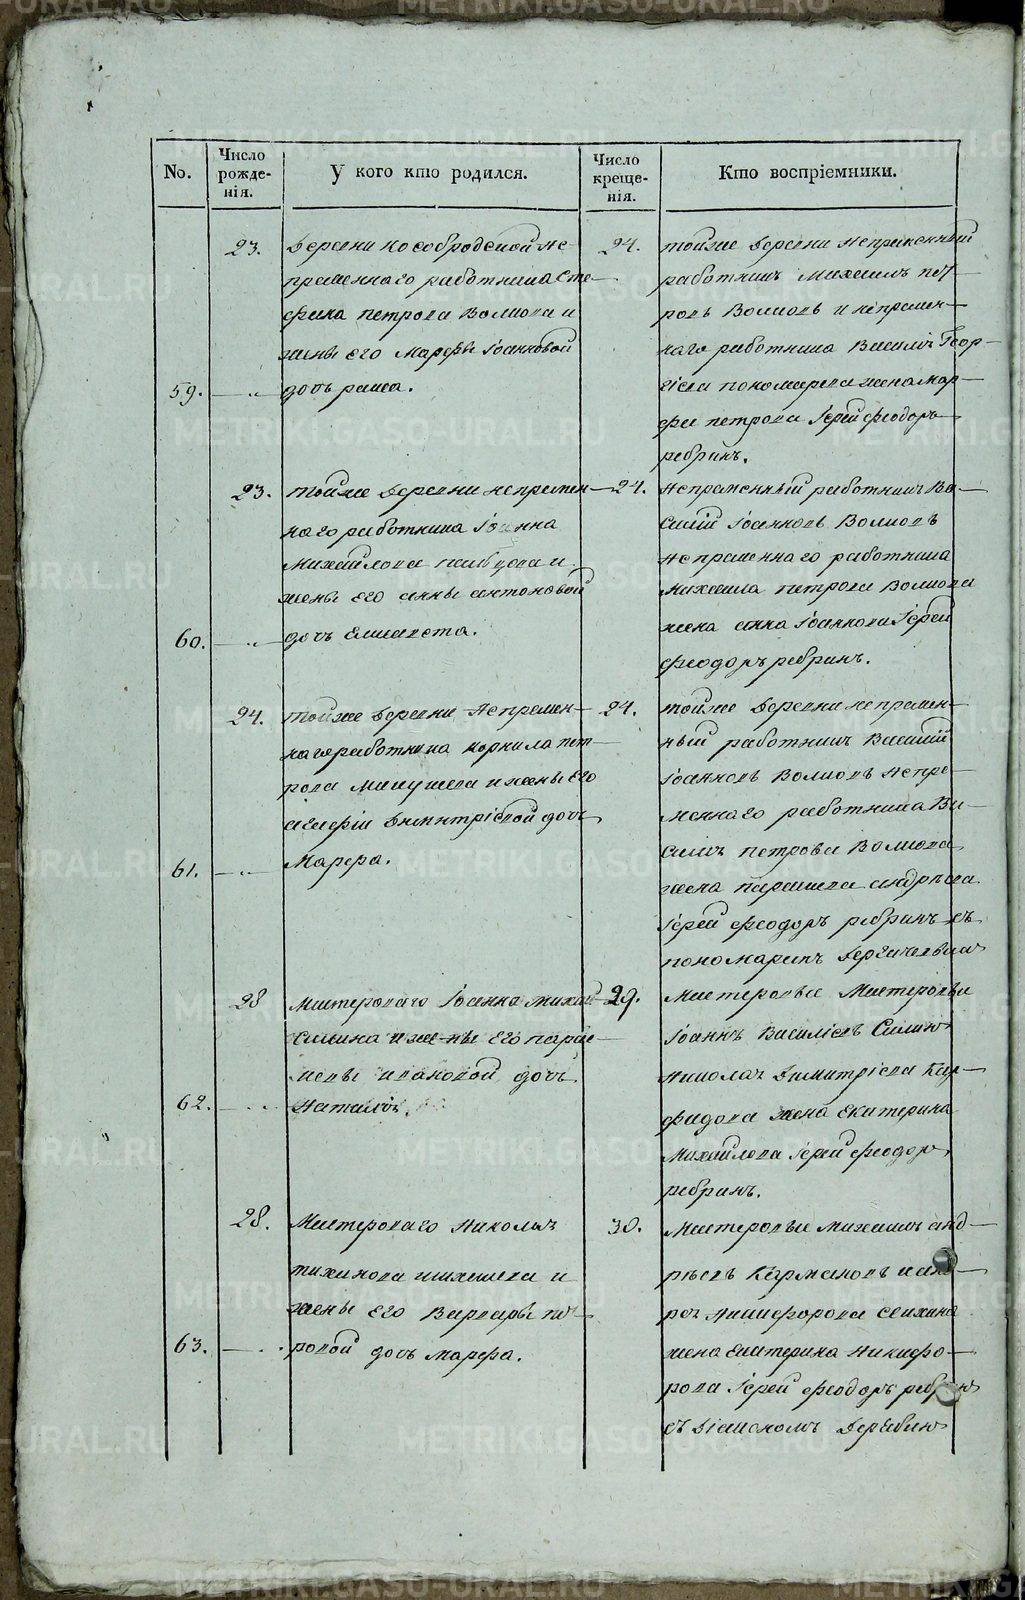 No.
Число рожде- нія.
У кого кто родился.
Число креще- нія.
Кто воспріемники.
59.
23.
деревни Кособродской не-
пременнаго работника Сте-
фана Петрова Волкова и
жены его Марфы Іоанновой
дочь раиса.
24.
тойже деревни непременный
работникъ Михаилъ пет-
ровъ Волковъ и непремен-
наго работника Василія Геор-
гіева пономарева жена мар-
фа петрова Іерей феодоръ
ребринъ.
60.
23.
тойже деревни непремен-
наго работника Іоанна
Михайлова пальцова и
жены его анны антоновой
дочь Елисавета.
24.
Непременный работникъ Ва-
силій Іоанновъ Волковъ
непременнаго работника
Михаила петрова Волкова
жена анна Іоаннова Іерей
феодоръ ребринъ.
61.
24.
тойже деревни Непремен-
наго работника корнила пет-
рова и жены его
дмитріевой дочь
Марфа.
24.
тойже деревни непремен-
ный работникъ Василій
Іоанновъ Волковъ непре-
меннаго работника Ва-
силія петрова Волкова
жена параскева андреева
Іерей феодоръ ребринъ съ
пономаремъ
62.
28
Мастероваго Іоанна михай
Силина и жены его парас-
кевы ивановой дочь
Наталія.
29.
Мастеровые Мастеровые
Іоаннъ Василіевъ Силинъ
Николая Димитріева
жена Екатерина
Михайлова Іерей феодоръ
ребринъ.
63.
28.
Мастероваго Николая
тихонова и
жены его Варвары пет-
ровой дочь марфа.
30.
Мастеровые михаилъ анд-
реевъ
Никифорова
жена Екатерина Никифо-
рова Іерей феодоръ ребринъ
съ
METRIKI.GASO-URAL.RU